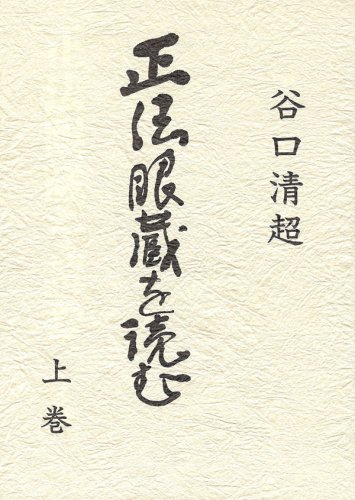 谷口清超
正法眼蔵を読む
上巻